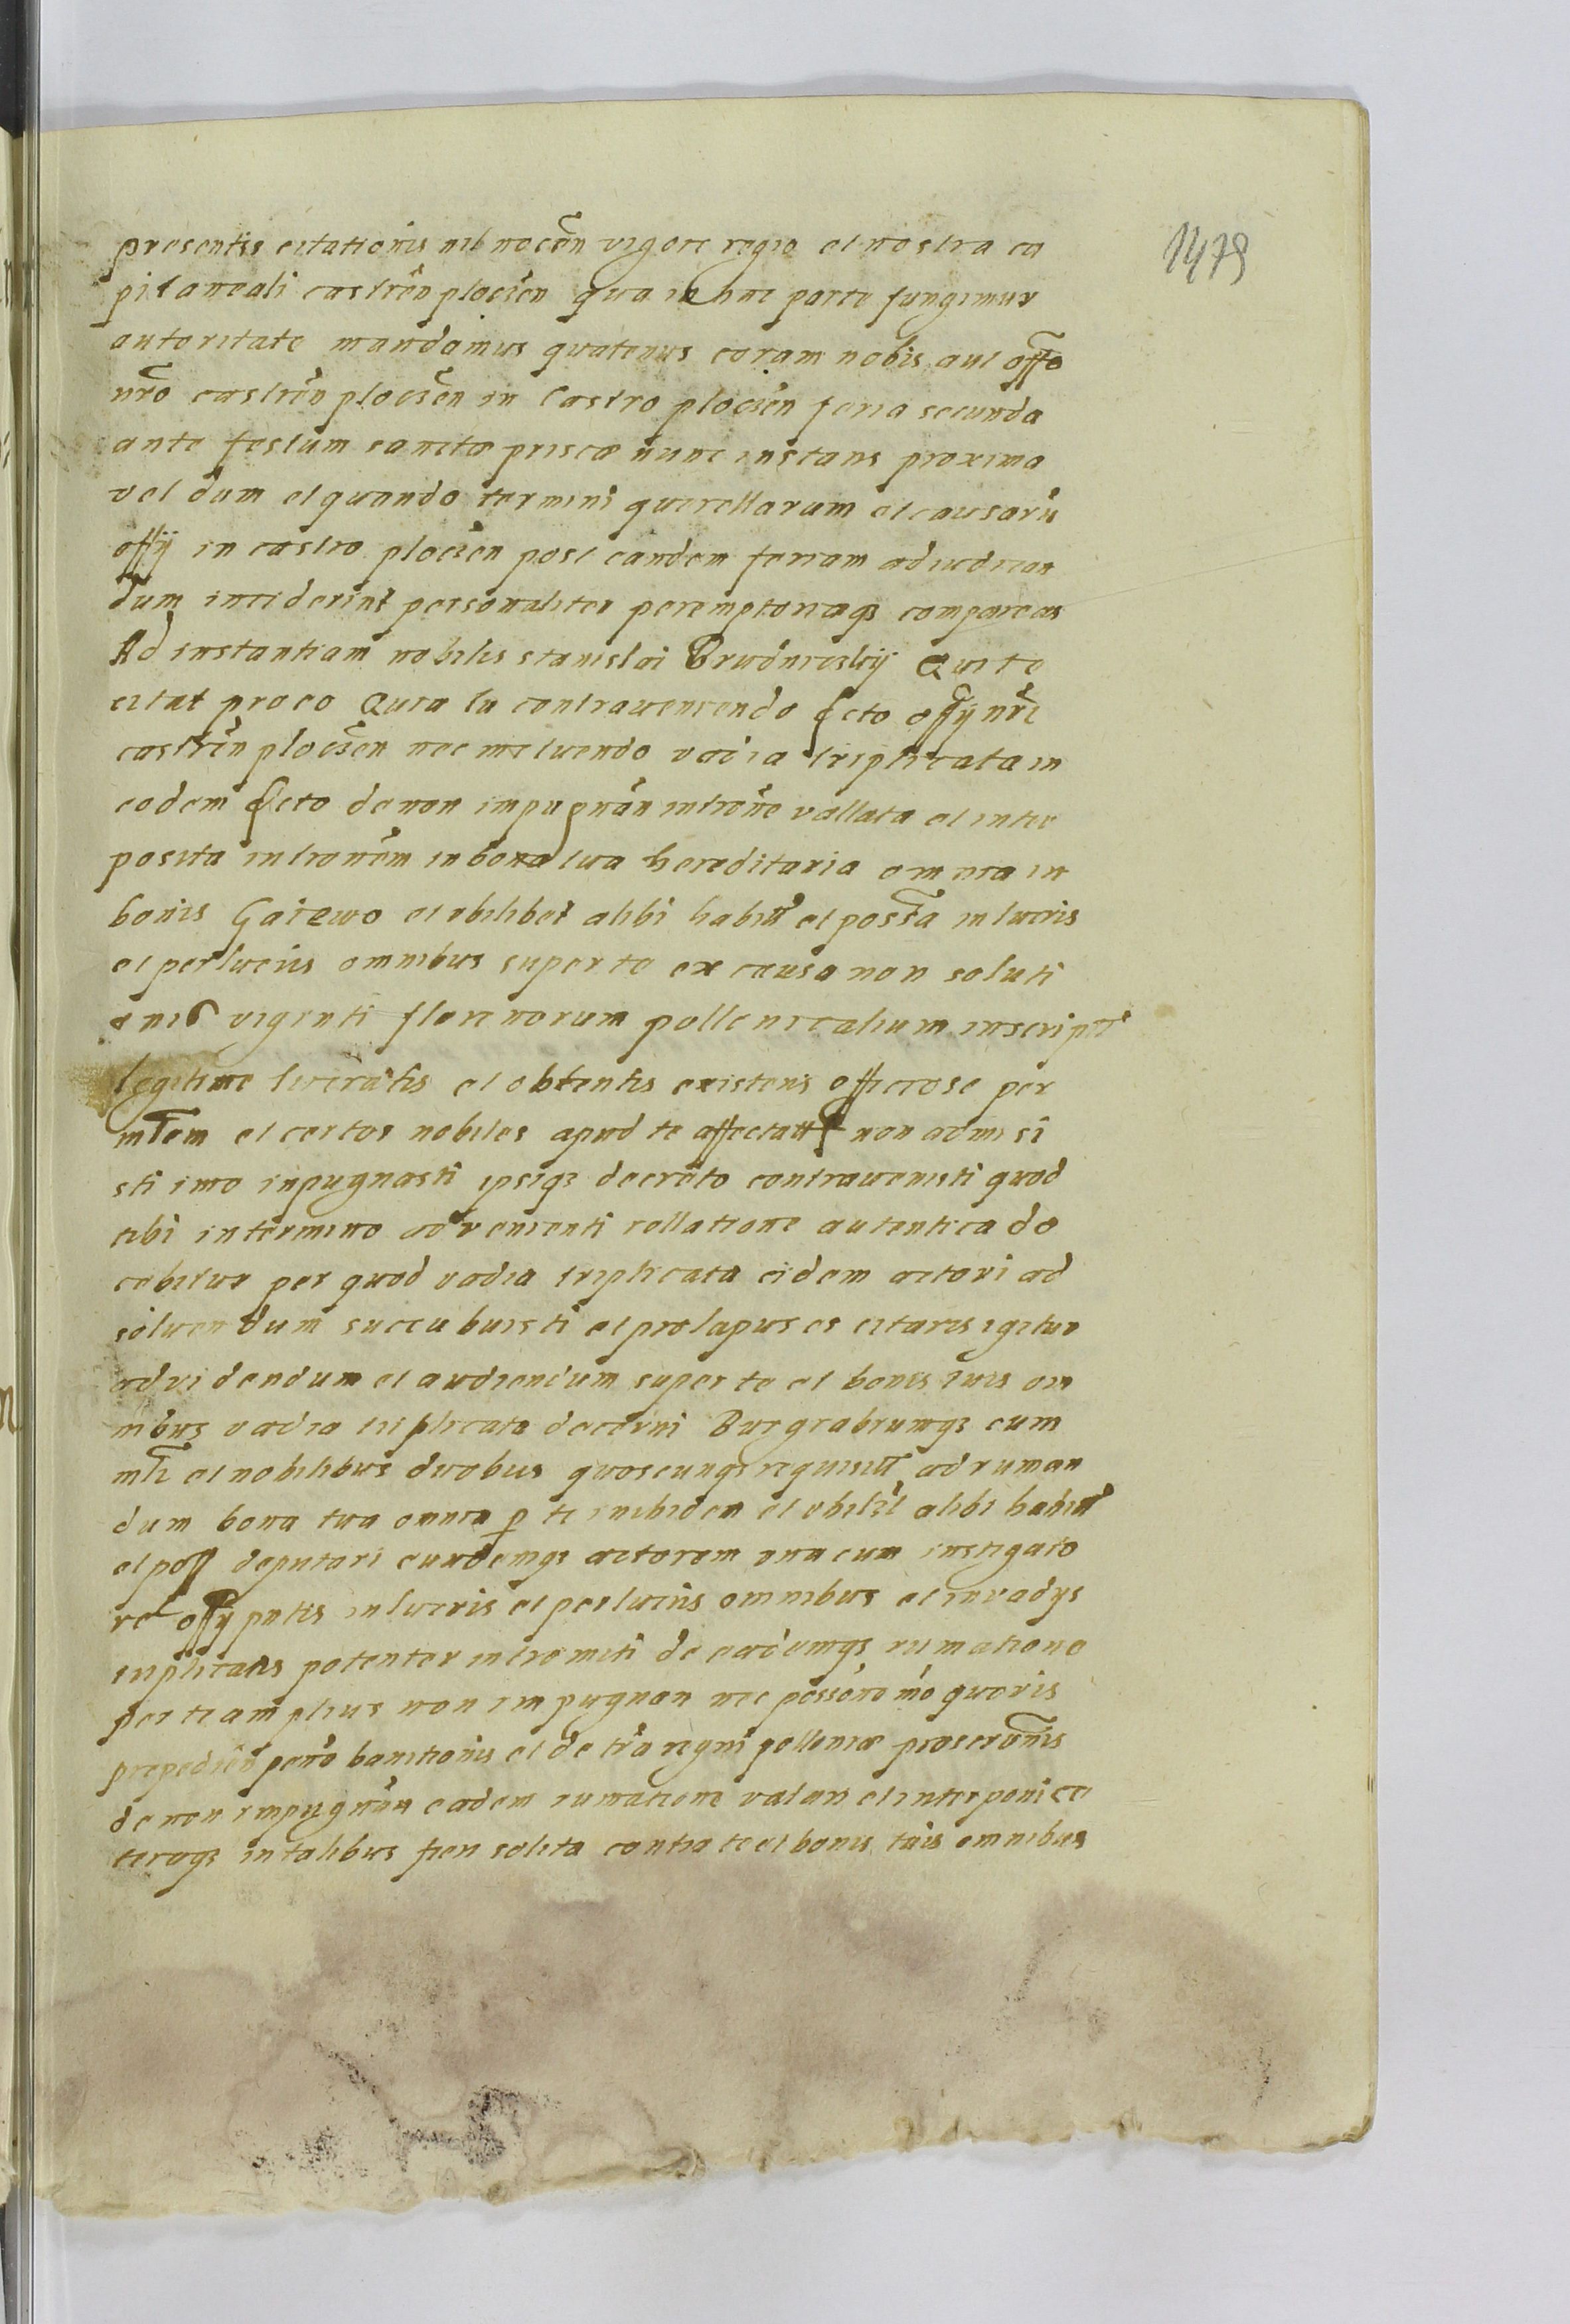 1479
presentis citationis nil nocen̄ vigore regio et nostra ca
pitaneali castren̄ plocen̄ qua in hac parte fungimur
autoritate mandamus quatenus coram nobis aut offo
nr̄o castren̄ plocen̄ in Castro plocen̄ feria secunda
ante festum sanctæ priscæ nunc instans proximo
vel dum et quando termini querellarum et causarū
offÿ in castro plocen̄ post eandem feriam adiudican
dum inciderint personaliter peremptorieq3 compareas
Ad instantiam nobilis stanislai Brudniczkÿ Qui te
citat pro eo Quia tu contraueniendo scto offÿ nr̄i
castren̄ plocen̄ nec metuendo vadia triplicata in
eodem scto de non impugnān introne vallata et inter
posita intronēm in bona tua hereditaria omnia in
bonis Gaiewo et vbilibet alibi habitt et possa in lucris
et perlucris omnibus super te ex causa non soluti
onis viginti florenorum pollonicalium inscriptt
legitime lucratis et obtentis existens officiose per
mlem et certos nobiles apud te affectatt non admisi
sti imo inpugnasti ipsiq3 decreto contrauenisti quod
tibi in termino advenienti collatione autentica do
cebitur per quod vadia triplicata eidem actori ad
soluendum succubuisti et prolapsus es citaris igitur
ad videndum et audiendum super te et bonis tuis om
nibus vadia triplicata decerni Burgrabiumq3 cum
mli et nobilibus duobus quoscunq3 requisitt ad ruman
dum bona tua omnia p te inibidem et vbilīt alibi habitt
et poss deputari eundemq3 actorem vna cum instigato
re offÿ pntis in lucris et perlucris omnibus et in vadÿs
triplicatis potenter intromiti de eademq3 rumatione
per te amplius non impugnan nec possōne mō quovis
prepedien̄ pena banitionis et de tr̄a regni polloniæ proscronis
de non impugnān eadem rumatione valari et interponi ce
teraq3 in talibus fieri solita contra te et bonis tuis omnibus